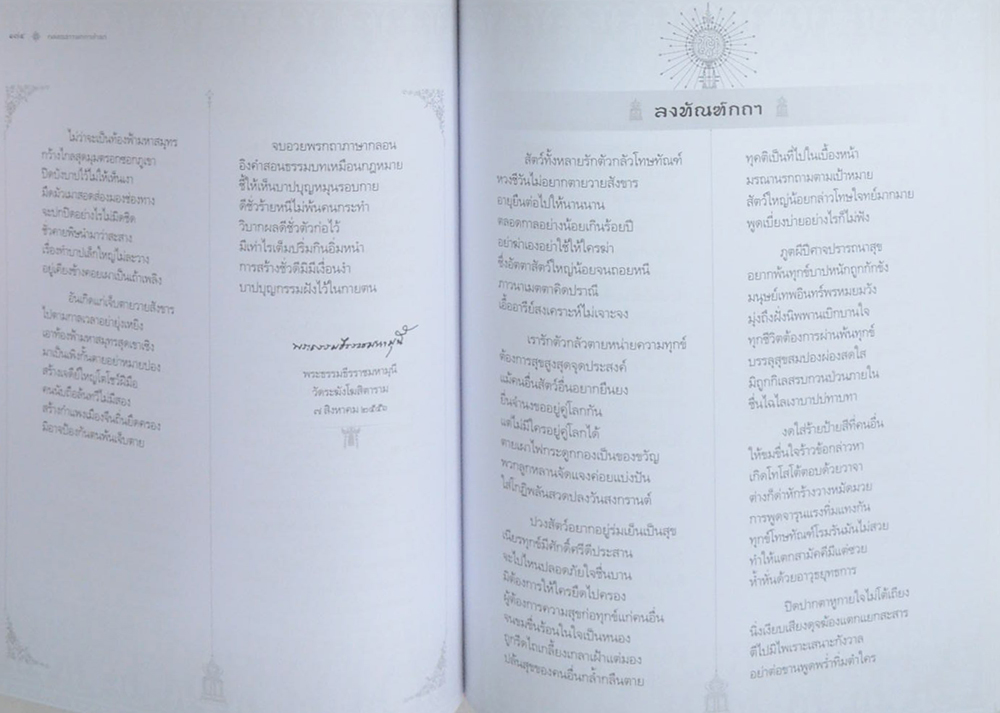 ๑๓๔
ไม่ว่าจะเป็นท้องฟ้ามหาสมุทร
กว้างไกลสุดมุมตรอกซอกภูเขา
ปิดบังบาปไว้ไม่ให้เห็นเงา
มืดมัวเมาสอดส่องมองช่องทาง
จะปกปิดอย่างไรไม่มืดชิด
ชั่วคายพิษนำมาว่าสะสาง
เรื่องทำบาปเล็กใหญ่ไม่ละวาง
อยู่เคียงข้างคอยเผาเป็นเถ้าเพลิง
อันเกิดแก่เจ็บตายวายสังขาร
ไปตามกาลเวลาอย่ายุ่งเหยิง
เอาท้องฟ้ามหาสมุทรสุดเขาเชิง
มาเป็นเพิงกั้นตายอย่าหมายปอง
สร้างเจดีย์ใหญ่โตโชว์ฝีมือ
คนนับถือล้นทวีไม่มีสอง
สร้างกำแพงเมืองจีนถิ่นยึดครอง
มิอาจป้องกันตนพ้นเจ็บตาย
จบอวยพรกถาภาษากลอน
อิงคำสอนธรรมบทเหมือนกฎหมาย
ชี้ให้เห็นบาปบุญหมุนรอบกาย
ดีชั่วร้ายหนีไม่พ้นคนกระทำ
วิบากผลดีชั่วตัวก่อไว้
มีเท่าไรเต็มปริ่มกินอิ่มหนำ
การสร้างชั่วดีมิมีเงื่อนงำ
บาปบุญกรรมฝังไว้ในกายตน
พระธรรมธีรราชมหามุนี
พระธรรมธีรราชมหามุนี
วัดระฆังโฆสิตาราม
๗ สิงหาคม ๒๕๕๖
ลงทัณฑ์กถา
สัตว์ทั้งหลายรักตัวกลัวโทษทัณฑ์
หวงชีวันไม่อยากตายวายสังขาร
อายุยืนต่อไปให้นานนาน
ตลอดกาลอย่างน้อยเกินร้อยปี
อย่าฆ่าเองอย่าใช้ให้ใครฆ่า
ซึ่งอัตตาสัตว์ใหญ่น้อยจนถอยหนี
ภาวนาเมตตาคิดปรานี
เอื้ออารีย์สงเคราะห์ไม่เจาะจง
เรารักตัวกลัวตายหน่ายความทุกข์
ต้องการสุขสูงสุดจุดประสงค์
แม้คนอื่นสัตว์อื่นอยากยืนยง
ยื่นจำนงขออยู่คู่โลกกัน
แต่ไม่มีใครอยู่คู่โลกได้
ตายเผาไฟกระดูกกองเป็นของขวัญ
พวกลูกหลานจัดแจงค่อยแบ่งปัน
ใส่โกฏิพลันสวดปลงวันสงกรานต์
ปวงสัตว์อยากอยู่ร่มเย็นเป็นสุข
เนียรทุกข์มีศักดิ์ศรีดีประสาน
จะไปไหนปลอดภัยใจชื่นบาน
มิต้องการให้ใครยึดไปครอง
ผู้ต้องการความสุขก่อทุกข์แก่คนอื่น
จนขมขื่นร้อนในใจเป็นหนอง
ถูกรีดไถเกลี้ยงเกลาเฝ้าแต่มอง
ปล้นสุขของคนอื่นกล้ำกลืนตาย
ทุคติเป็นที่ไปในเบื้องหน้า
มรณานรกถามตามเป้าหมาย
สัตว์ใหญ่น้อยกล่าวโทษโจทย์มากมาย
พูดเบี่ยงบ่ายอย่างไรก็ไม่ฟัง
ภูตผีปีศาจปรารถนาสุข
อยากพ้นทุกข์บาปหนักถูกกักขัง
มนุษย์เทพอินทร์พรหมยมวัง
มุ่งถึงฝั่งนิพพานเบิกบานใจ
ทุกชีวิตต้องการผ่านพ้นทุกข์
บรรลุสุขสมปองผ่องสดใส
มิถูกกิเลสรบกวนป่วนภายใน
ชื่นไฉไลเงาบาปบ่ทาบทา
งดใส่ร้ายป้ายสีที่คนอื่น
ให้ขมขื่นใจร้าวข้อกล่าวหา
เกิดโทโสโต้ตอบด้วยวาจา
ต่างก็ด่าหักร้างวางหมัดมวย
การพูดจารุนแรงทิ่มแทงกัน
ทุกข์โทษทัณฑ์โรมรันมันไม่สวย
ทำให้แตกสามัคคีมีแต่ซวย
ห้ำหั่นด้วยอาวุธยุทธการ
ปิดปากตาหูกายใจไม่โต้เถียง
นิ่งเงียบเสียงดุจฆ้องแตกแยกสะสาร
ตีไปมิไพเราะเสนาะกังวาล
อย่าต่อขานพูดพร่ำทิ่มตำใคร